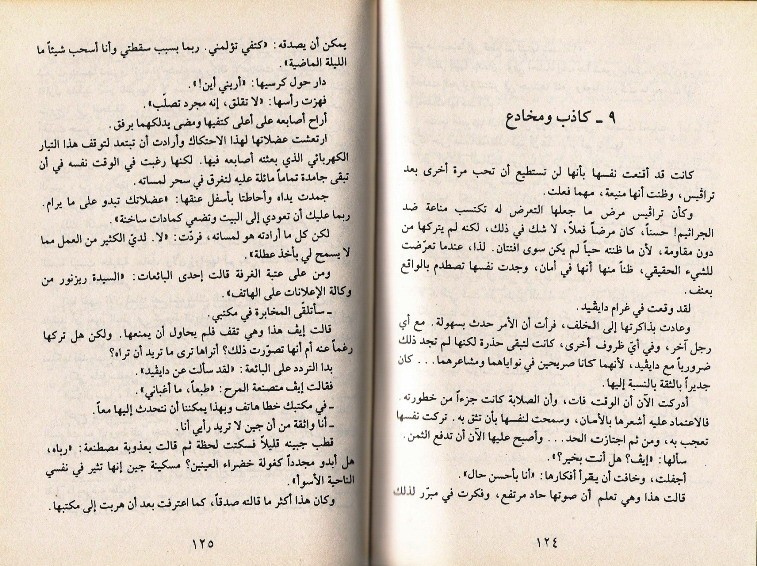 ٩ ـ كاذب ومخادع
كانت قد أقنعت نفسها بأنها لن تستطيع أن تحب مرة أخرى بعد
تراڤيس، وظنت أنها منيعة، مهما فعلت.
وكأن تراڤيس مرض ما جعلها التعرض له تكتسب مناعة ضد
الجراثيم! حسناً، كان مرضاً فعلاً، لا شك في ذلك، لكنه لم يتركها من
دون مقاومة، لأن ما ظنته حباً لم يكن سوى افتتان. لذا، عندما تعرّضت
للشيء الحقيقي، ظناً منها أنها في أمان، وجدت نفسها تصطدم بالواقع
بعنف.
لقد وقعت في غرام دايڤيد.
وعادت بذاكرتها إلى الخلف، فرأت أن الأمر حدث بسهولة. مع أي
رجل آخر، وفي أيّ ظروف أخرى، كانت لتبقى حذرة لكنها لم تجد ذلك
ضرورياً مع دايڤيد، لأنهما كانا صريحين في نواياهما ومشاعرهما... كان
جديراً بالثقة بالنسبة إليها.
أدركت الآن أن الوقت فات، وأن الصلابة كانت جزءاً من خطورته.
فالاعتماد عليه أشعرها بالأمان، وسمحت لنفسها بأن تثق به. تركت نفسها
تعجب به، ومن ثم اجتازت الحد... وأصبح عليها الآن أن تدفع الثمن.
سألها: «إيڤ؟ هل أنت بخير؟».
أجفلت، وخافت أن يقرأ أفكارها: «أنا بأحسن حال».
قالت هذا وهي تعلم أن صوتها حاد مرتفع، وفكرت في مبرّر لذلك
١٢٤
يمكن أن يصدقه: «كتفي تؤلمني. ربما بسبب سقطتي وأنا أسحب شيئاً ما
الليلة الماضية».
دار حول كرسيها: «أريني أين!».
فهزت رأسها: «لا تقلق، إنه مجرد تصلّب».
أراح أصابعه على أعلى كتفيها ومضى يدلكهما برفق.
ارتعشت عضلاتها لهذا الاحتكاك وأرادت أن تبتعد لتوقف هذا التيار
الكهربائي الذي بعثته أصابعه فيها. لكنها رغبت في الوقت نفسه في أن
تبقى جامدة تماماً مائلة عليه لتغرق في سحر لمساته.
جمدت يداه وأحاطتا بأسفل عنقها: «عضلاتك تبدو على ما يرام.
ربما عليك أن تعودي إلى البيت وتضعي كمادات ساخنة».
لكن كل ما أرادته هو لمساته، فردّت: «لا. لديّ الكثير من العمل مما
لا يسمح لي بأخذ عطلة».
ومن على عتبة الغرفة قالت إحدى البائعات: «السيدة ريزنور من
وكالة الإعلانات على الهاتف».
ـ سأتلقّى المخابرة في مكتبي.
قالت إيڤ هذا وهي تقف فلم يحاول أن يمنعها. ولكن هل تركها
رغماً عنه أم أنها تصوّرت ذلك؟ أتراها ترى ما تريد أن تراه؟
بدا التردد على البائعة: «لقد سألت عن دايڤيد».
فقالت إيڤ متصنعة المرح: «طبعاً، ما أغباني».
ـ في مكتبك خطا هاتف وبهذا يمكننا أن نتحدث إليها معاً.
ـ أنا واثقة من أن جين لا تريد رأيي أنا.
قطب جبينه قليلاً فسكتت لحظة ثم قالت بعذوبة مصطنعة: «رباه،
هل أبدو مجدداً كغولة خضراء العينين؟ مسكينة جين إنها تثير في نفسي
الناحية الأسوأ».
وكان هذا أكثر ما قالته صدقاً، كما اعترفت بعد أن هربت إلى مكتبها.
١٢٥